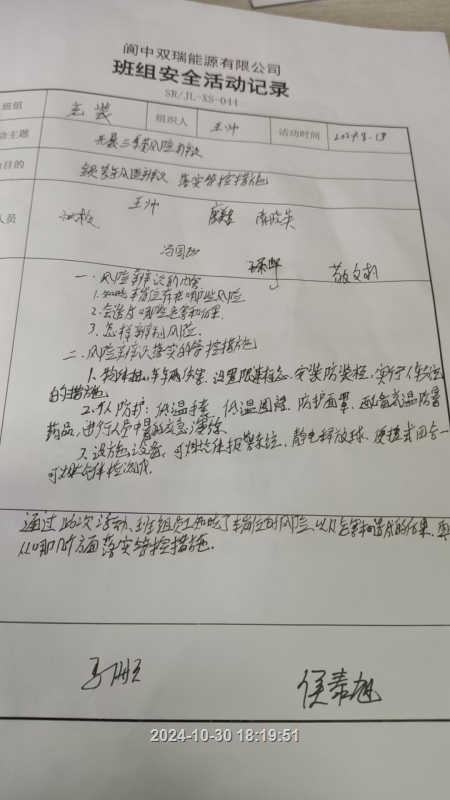 阆中双瑞能源有限公司
班组安全活动记录
SR/JL-XS-044
班组 充装 组织人 王帅 活动时间 2024.8.19
动主题 开展三季度风险辨识
目的 识 落实管控措施
人员 王帅
冯国
敬文
一、风险辨识的内容
1.知晓岗位存在哪些风险
2.会造成哪些危害和后果.
3.怎样辨别风险.
二、风险辨识落实的管控措施
1.物体打击,车辆伤害,设置限速标志,安装防装栏,实行人车分流
的措施
2.个人防护:低温手套 低温围裙 防护面罩,配备高温防暑
药品,进行人员中暑的应急演练
3.设施设备:可燃气体报警系统,静电释放球,便携式四合一
可燃气体检测仪
通过此次活动,班组员工知晓了岗位的风险,以及危害和造成的后果,
从哪几方面落实管控措施.
侯春旭
2024-10-30 18:19:51